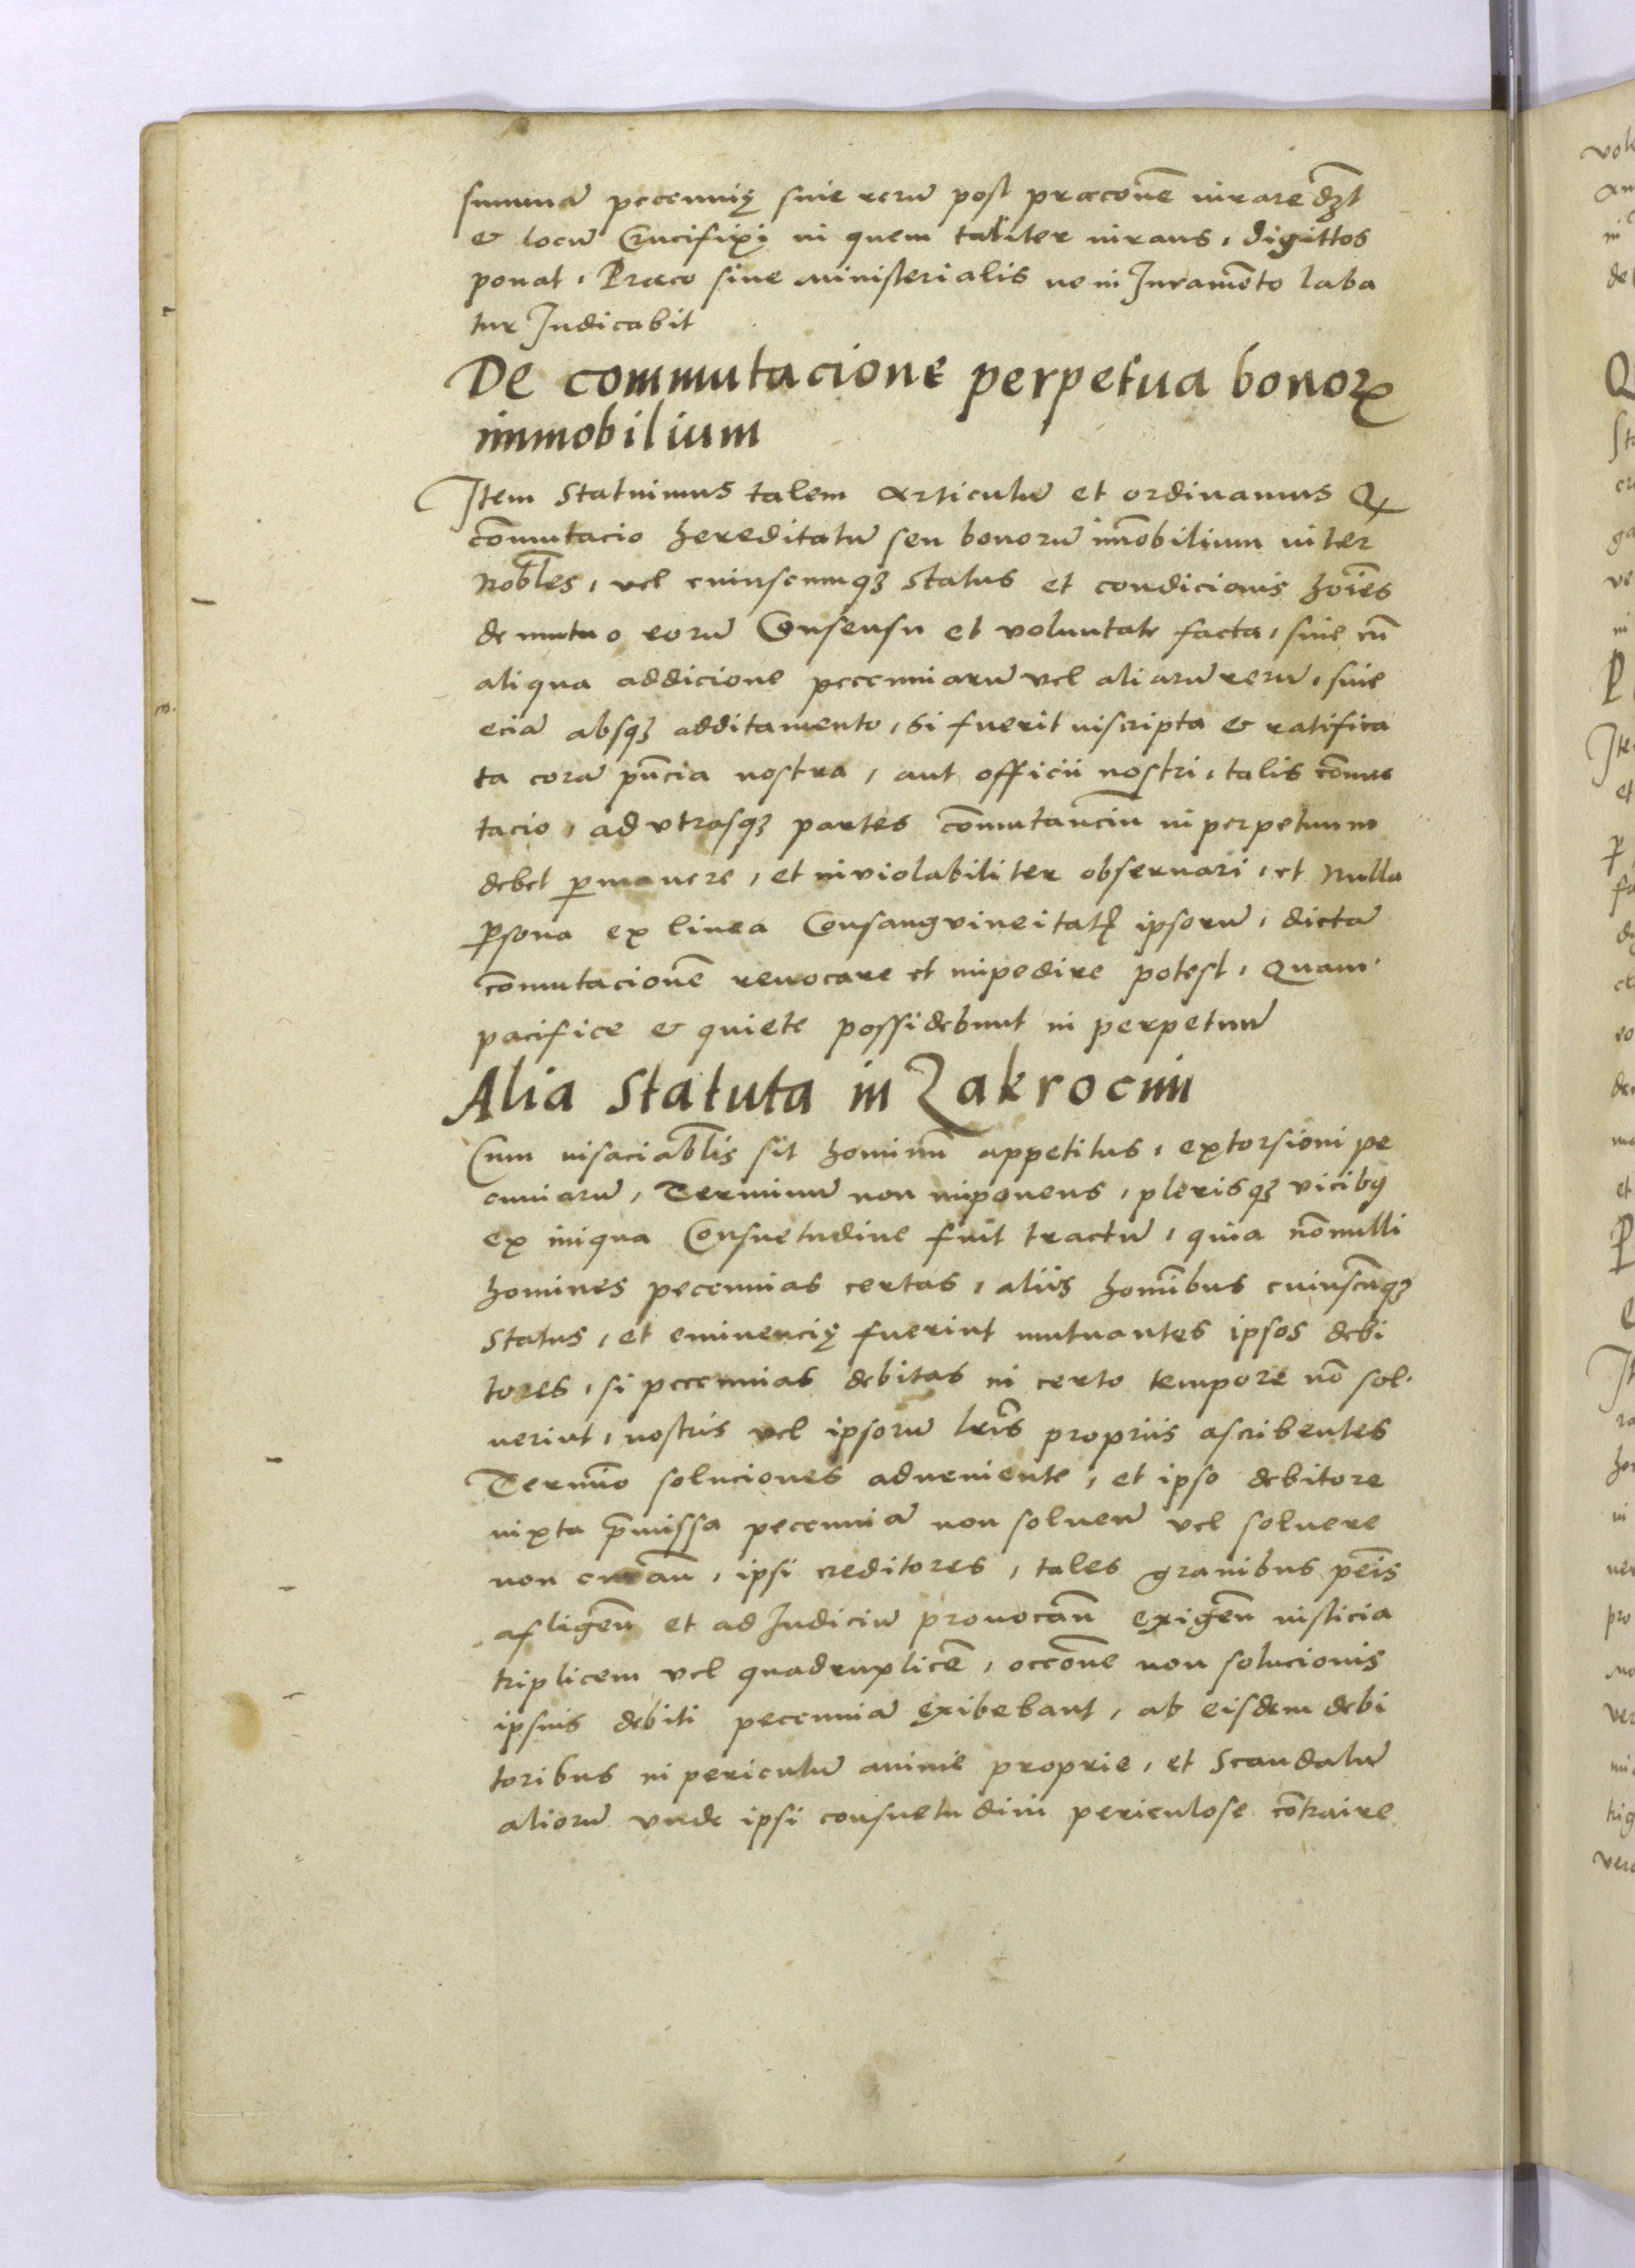 summā peccunię siue rerū post præconē iurare dꝫt
& locū Crucifixi in quem taliter iurans, digittos
ponat, Præco siue ministerialis ne in Iuramēto laba
tur Iudicabit
De commutacione perpetua bonoꝝ
immobilium
Item statuimus talem articulū et ordinamus Q
cōmutacio hereditatū seu bonorū im̄obilium inter
Nobl̄es, vel cuiuscumqꝫ status et condicionis hoīes
de mutuo eorū Consensu et voluntate facta, siue cū
aliqua addicione peccuniarū vel aliarū rerū, siue
eciā absqꝫ additamento, si fuerit inscripta & ratifica
ta corā pn̄cia nostra, aut officii nostri, talis cōmu
tacio, ad vtrasqꝫ partes cōmutanciū in perpetuum
debet ꝑmanere, et inviolabiliter obseruari, et nulla
ꝑsona ex linea Consangvineitatꝭ ipsorū, dictā
cōmutacionē reuocare et impedire potest, Quam
pacifice & quiete possidebunt in perpetuū
Alia Statuta in Zakrocim
Cum insaciabl̄is sit hominū appetitus, extorsioni pe
cuniarū, Terminū non imponens, plerisqꝫ vicibꝰ
ex iniqua Consuetudine fuit tractū, quia nōnulli
homines peccunias certas, aliis homīibus cuiuscūqꝫ
status, et eminencię fuerint mutuantes ipsos debi
tores, si peccunias debitas in certo tempore nō sol
uerint, nostris vel ipsorū lr̄is propriis ascribentes
Termīo soluciones adueniente, et ipso debitore
iuxta p̄missa peccuniā non soluen̄ vel soluere
non curan̄, ipsi creditores, tales grauibus pēis
afligen̄ et ad Iudiciū prouocan̄ exigen̄ iusticia
triplicem vel quadruplicē, occōne non solucionis
ipsius debiti peccuniā exibebant, ab eisdem debi
toribus in periculū anime proprie, et scandalū
aliorū vnde ipsi consuetudini periculose cōtraire